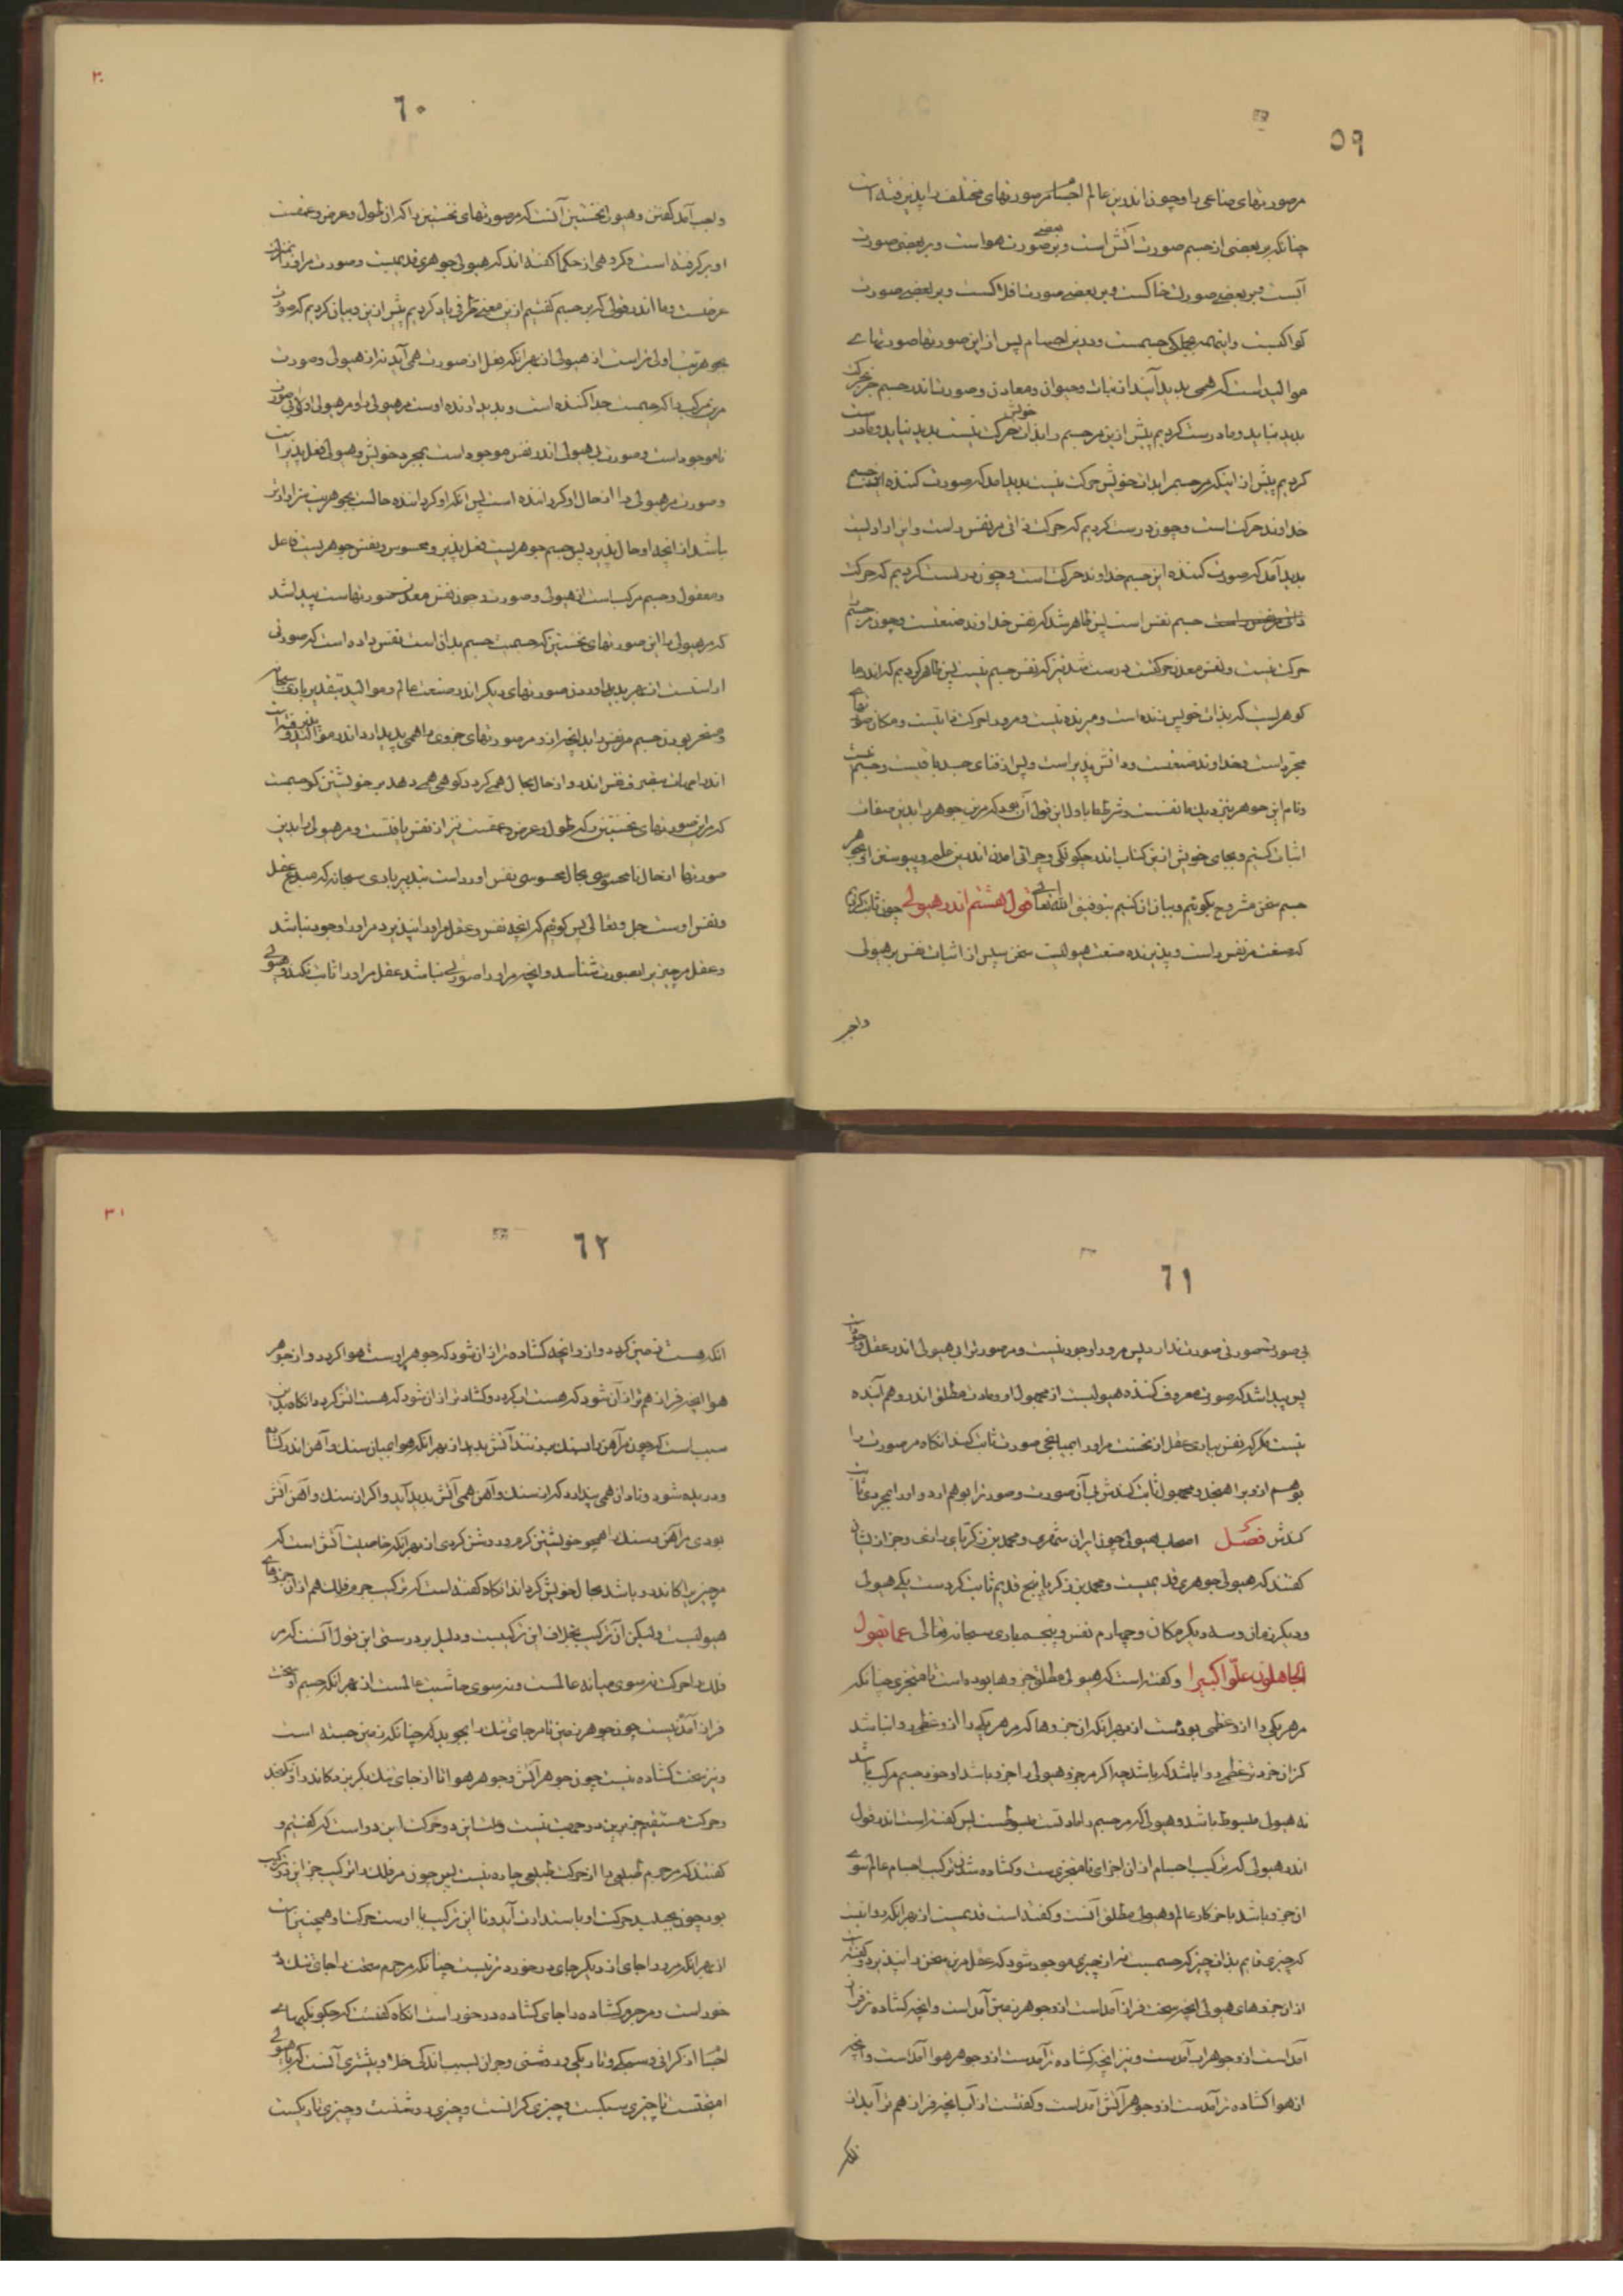 ۵۹
مر صورتهای صناعی را و چون اندرین عالم اجسام مر صورتهای مختلف را پذیرفته است
چنانکه بر بعضی از جسم صورت آتش است و بر بعضی صورت هواست و بر بعضی صورت
آبست و بر بعضی صورت خاکست و بر بعضی صورت افلاکست و بر بعضی صورت
کواکبست و اینهمه بجملگی جسمست و در این اجسام پس از این صورتها صورتهای
موالید است که همی پدید آیند از نبات و حیوان و معادن و صورت اندر جسم جز بحرکت
پدید نیاید و ما درست کردیم پیش ازین مر جسم را بذات خویش حرکت نیست پدید نیاید و ما درست
کردیم پیش از اینکه مر جسم را بذات خویش حرکت نیست پدید آمد که صورت کننده این جسم
خداوند حرکت است و چون درست کردیم که حرکت ذاتی مر نفس راست و این ارادیست
پدید آمد که صورت کننده این جسم خداوند حرکت است و چون درست کردیم که حرکت
ذاتی مر نفس راست جسم نفس است پس ظاهر شد که نفس خداوند صنعتست و چون مر جسم را
حرکت نیست و نفس معدن حرکتست درست شد نیز که نفس جسم نیست پس ظاهر کردیم که اندر ما
گوهریست که بذات خویش زنده است و میرنده نیست و مر و را حرکت ذاتیست و مکان صورتهای
مجرد است و خداوند صنعتست و دانش پذیر است و پس از فنای جسد باقیست و جسم نیست
و نام این جوهر بنزدیک ما نفسست و شرط ما باول این قول آن بود که مر این جوهر را بدین صفات
اثبات کنیم و بجای خویش ازین کتاب اندر چگونگی و چرائی آمدن اندرین عالم و پیوستن او بجوهر
جسم سخن مشروح بگوئیم و بیان آن کنیم بتوفیق الله تعالی قول هشتم اندر هیولی چون ثابت کردیم
که صنعت مر نفس راست و پذیرنده صنعت هیولیست سخن سپس از اثبات نفس بر هیولی
واجب
۳۰
۶۰
واجب آمد گفتن و هیولی نخستین آنست که مر صورتهای نخستین را که آن طول و عرض و عمقست
او برگرفته است و گروهی از حکما گفته اند که هیولی جوهری قدیمست و صورت مر او را بمنزلت
عرضست و ما اندر قولی که بر جسم گفتیم ازین معنی طرفی یاد کردیم پیش ازین و بیان کردیم که صورت
بجوهریت اولی تر است از هیولی از بهر آنکه فعل از صورت همی آید نه از هیولی و صورت
مر این مرکب را که جسمست جدا کننده است و پدید آرنده اوست مر هیولی را و مر هیولی اولی بی صورت
ناموجود است و صورت بی هیولی اندر نفس موجود است بمجرد خویش و هیولی فعل پذیر است
و صورت مر هیولی را از حال او گرداننده است پس آنکه او گرداننده حالست بجوهریت سزاوارتر
باشد از آنچه او حال پذیرد پس جسم جوهریست فعل پذیر و محسوس و نفس جوهریست فاعل
و معقول و جسم مرکب است از هیولی و صورت و چون نفس معدن صورتهاست پیدا شد
که مر هیولی را این صورتهای نخستین که جسمیت جسم بدانست نفس داده است که صورتی
اولیست از بهر پدید آوردن صورتهای دیگر اندر صنعت عالم و موالید بتقدیر باری سبحانه
و مسخر بودن جسم مر نفس را بدانچه از و مر صورتهای جزوی را همی پدید آرد اندر موالید و پذیرفته است
اندر امهات بتغییر نفس اندر و از حال بحال همی گردد گواهی همی دهد بر خویشتن که جسمست
که مر این صورتهای نخستین را که طول و عرض و عمقست نیز از نفس یافتست و مر هیولی را بدین
صورتها از حال نامحسوسی بحال محسوسی نفس آورد است بتدبیر باری سبحانه که مبدع عقل
و نفس اوست جل و تعالی پس گوئیم که آنچه نفس و عقل مر او را نپذیرد مر او را وجود نباشد
و عقل مر چیز را بصورت شناسد و آنچه مر او را صورتی نباشد عقل مر او را ثابت نکند و هیولی
۶۱
بی صورت صورتی صورت ندارد پس مر و را وجود نیست و مر صورت را بی هیولی اندر عقل وجود است
پس پیدا شد که صورت معروف کننده هیولیست از مجهولی او و مادت مطلق اندر وهم آینده
نیست مگر که نفس بیاری عقل از نخست مر او را بمیانجی صورت ثابت کند آنگاه مر صورت را
بوهم ازو برآهنجد و مجهول ثابت کندش بی آن صورت و صورت را بوهم آرد و او را بجزوی ثابت
کندش فصل اصحاب هیولی چون ایران شهری و محمد بن زکریای رازی و جز از ایشان
گفتند که هیولی جوهری قدیمست و محمد بن زکریا پنج قدیم ثابت کردست یکی هیولی
و دیگر زمان و سه دیگر مکان و چهارم نفس و پنجم باری سبحانه تعالی عما تقول
الجاهلون علوا کبیرا و گفته است که هیولی مطلق جزوها بوده است نامتجزی چنانکه
مر هر یکی را ازو عظمی بودست از بهر آنکه آن جزوها که مر هر یکی را ازو عظمی روا نباشد
کز آن خرد تر عظمی روا باشد که باشد چه اگر مر جزو هیولی را جزو باشد او خود جسم مرکب باشد
نه هیولی مبسوط باشد و هیولی که مر جسم را مادتست مبسوطست پس گفته است اندر قول
اندر هیولی که ترکیب اجسام از آن اجزای نامتجزیست و گشاده شدن ترکیب اجسام عالم سوی
آن جزو باشد بآخر کار عالم و هیولی مطلق آنست و گفته است قدیمست از بهر آنکه روا نیست
که چیزی قایم بذات چیز که جسمست نه از چیزی موجود شود که عقل مر این سخن را نپذیرد و گفته است
از آن جزوهای هیولی آنچه سخت فراز آمد است ازو جوهر زمین آمد است و آنچه گشاده تر فراز
آمد است ازو جوهر آب آمدست و نیز آنچه گشاده تر آمدست ازو جوهر هوا آمد است و آنچه
از هوا گشاده تر آمدست ازو جوهر آتش آمد است و گفتست از آب آنچه فراز هم تر آید از
آنکه
۳۱
۶۲
آنکه هست زمین گردد و از و آنچه گشاده تر از آن شود که جوهر اوست هوا گردد و از جوهر
هوا آنچه فراز هم تر از آن شود که هست آب گردد و گشاده تر از آن شود که هست آتش گردد آنگاه بدین
سبب است که چون مر آهن را بسنگ برزنند آتش پدید آید از بهر آنکه هوا بمیان سنگ و آهن اندر گشاده
و دریده شود و نادان همی پندارد که از سنگ و آهن همی آتش پدید آید و اگر از سنگ و آهن آتش
بودی مر آهن و سنگ را همچو خویشتن گرم و روشن کردی از بهر آنکه خاصیت آتش است که
مر چیز را که اندر و باشد بحال خویش گرداند آنگاه گفته است که ترکیب جرم فلک هم از آن جزوهای
هیولیست ولیکن آن ترکیب بخلاف این ترکیبست و دلیل بر درستی این قول آنست که مر
فلک را حرکت نه سوی میانه عالمست و نه سوی حاشیت عالمست از بهر آنکه جسم او سخت
فراز آمده نیست چون جوهر زمین تا مر جای تنگ را بجوید که چنانکه زمین جسته است
و نیز سخت گشاده نیست چون جوهر آتش و جوهر هوا تا از جای تنگ بگریزد که اندر او نگنجد
و حرکت مستقیم جز برین دو جهت نیست و علت این دو حرکت این دو است که گفتیم و
گفتند که مر جسم طبیعی را از حرکت طبیعی چاره نیست پس چون مر فلک را ترکیب جز این دو ترکیب
بود چون بجنبید حرکت او باستدارت آید و تا این ترکیب با اوست حرکت او همچنین است
از بهر آنکه مر و را جای از دیگر جای در خورد تر نیست چنانکه مر جرم سخت را جای تنگ در
خور است و مر جرم گشاده را جای گشاده در خور است آنگاه گفتست که چگونگیهای
اجسام از گرانی و سبکی و تاریکی و روشنی و جز آن بسبب اندکی خلا و بیشتری آنست که با هیولی
آمیختست تا چیزی سبکست و چیزی گرانست و چیزی روشنست و چیزی تاریکست